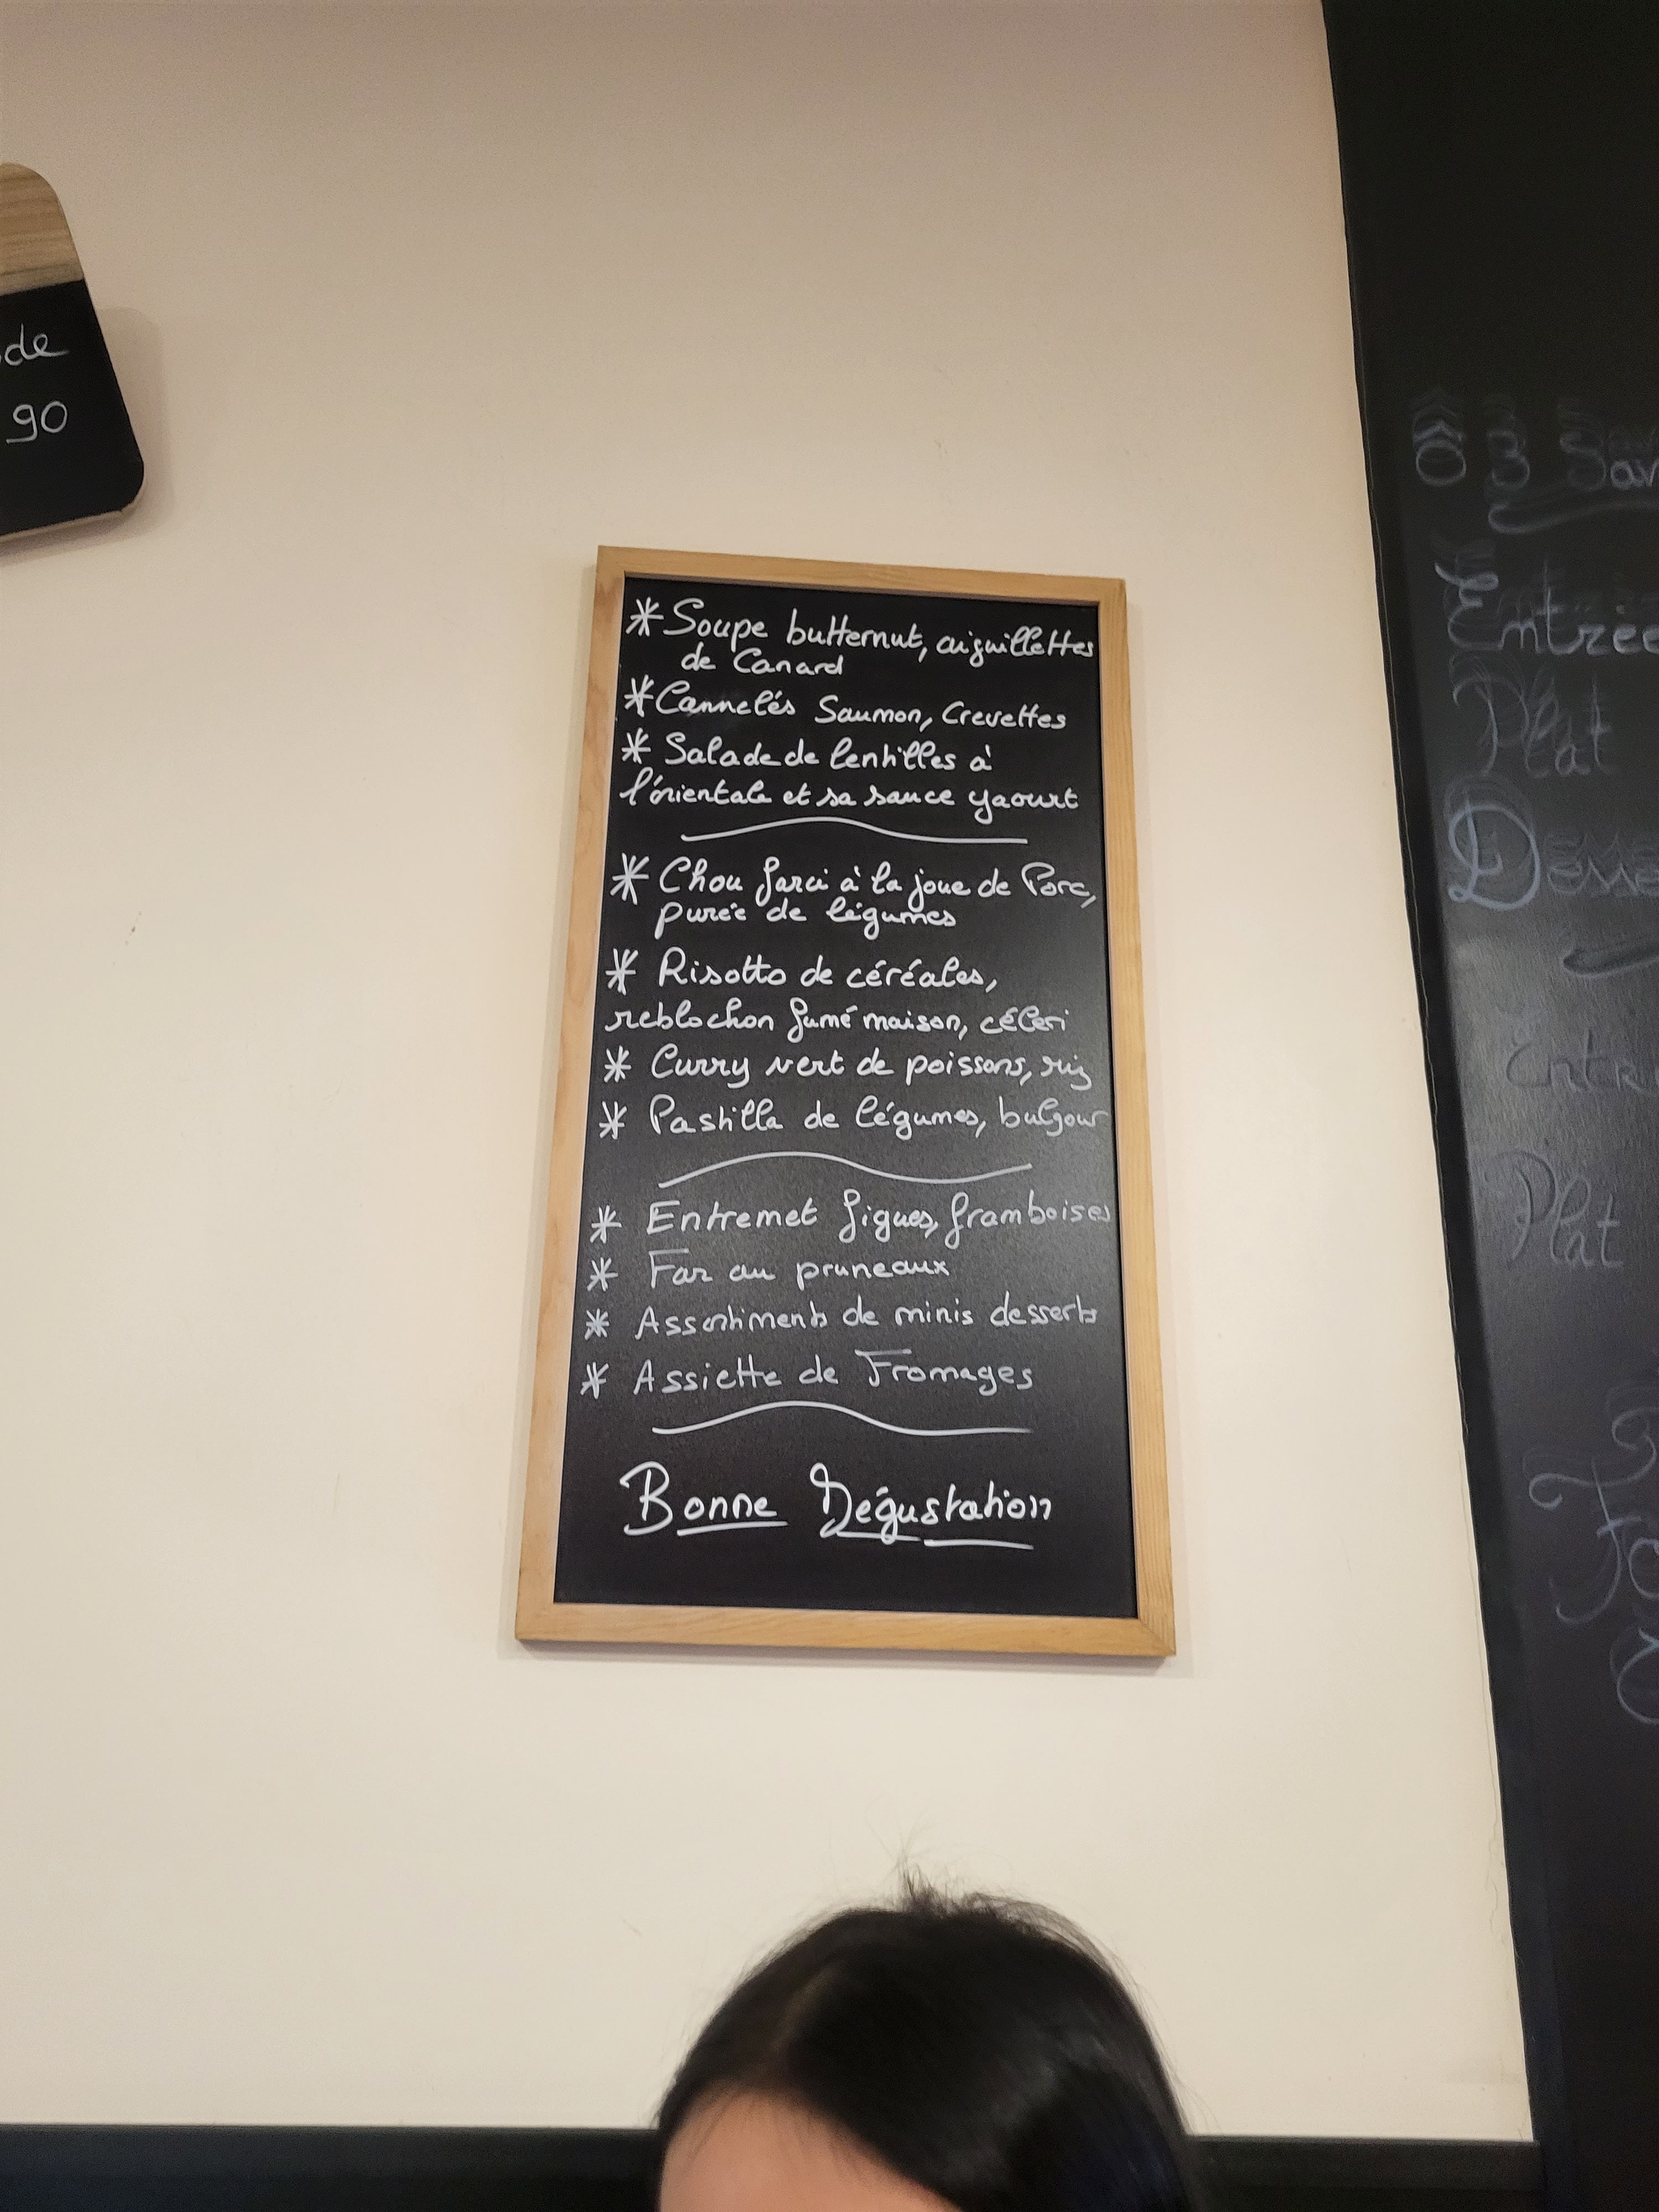 de
90
* Soupe butternut, aiguillettes
de Canard
* Cannelés Saumon, Crevettes
* Salade de lentilles à
l'orientale et sa sauce yaourt
* Chou farci à la joue de Porc,
purée de légumes
* Risotto de céréales,
reblochon fumé maison, céleri
* Curry vert de poissons, riz
* Pastilla de légumes, bulgour
* Entremet figues, framboises
* Far au pruneaux
* Assortiments de minis desserts
* Assiette de Fromages
Bonne Dégustation
Entrée
Plat
Plat